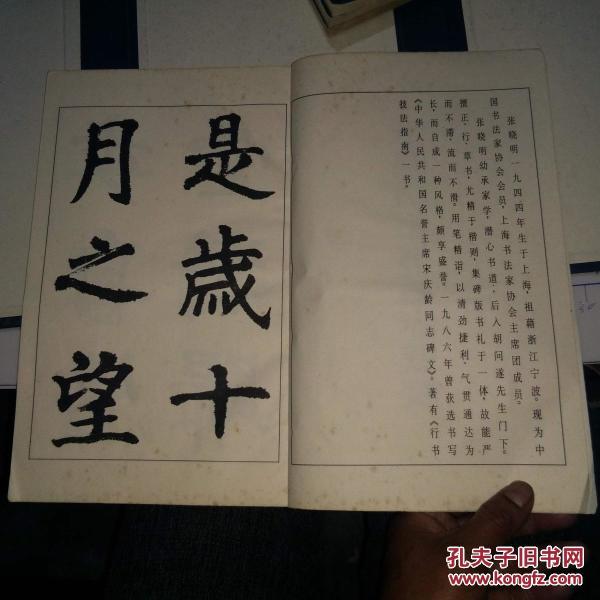 张晓明一九四四年生于上海，祖籍浙江宁波。现为中
国书法家协会会员，上海书法家协会主席团成员。
张晓明幼承家学，潜心书道，后入胡问遂先生门下。
擅正、行、草书，尤精于楷则，集碑版书礼于一体，故能严
而不滞，流而不滑。用笔精诣，以清劲捷利，气贯通达为
长，而自成一种风格，颇享盛誉。一九八六年曾获选书写
《中华人民共和国名誉主席宋庆龄同志碑文》。著有《行书
技法指南》一书。
是歲十
月之望
孔夫子旧书网
www.kongfz.com